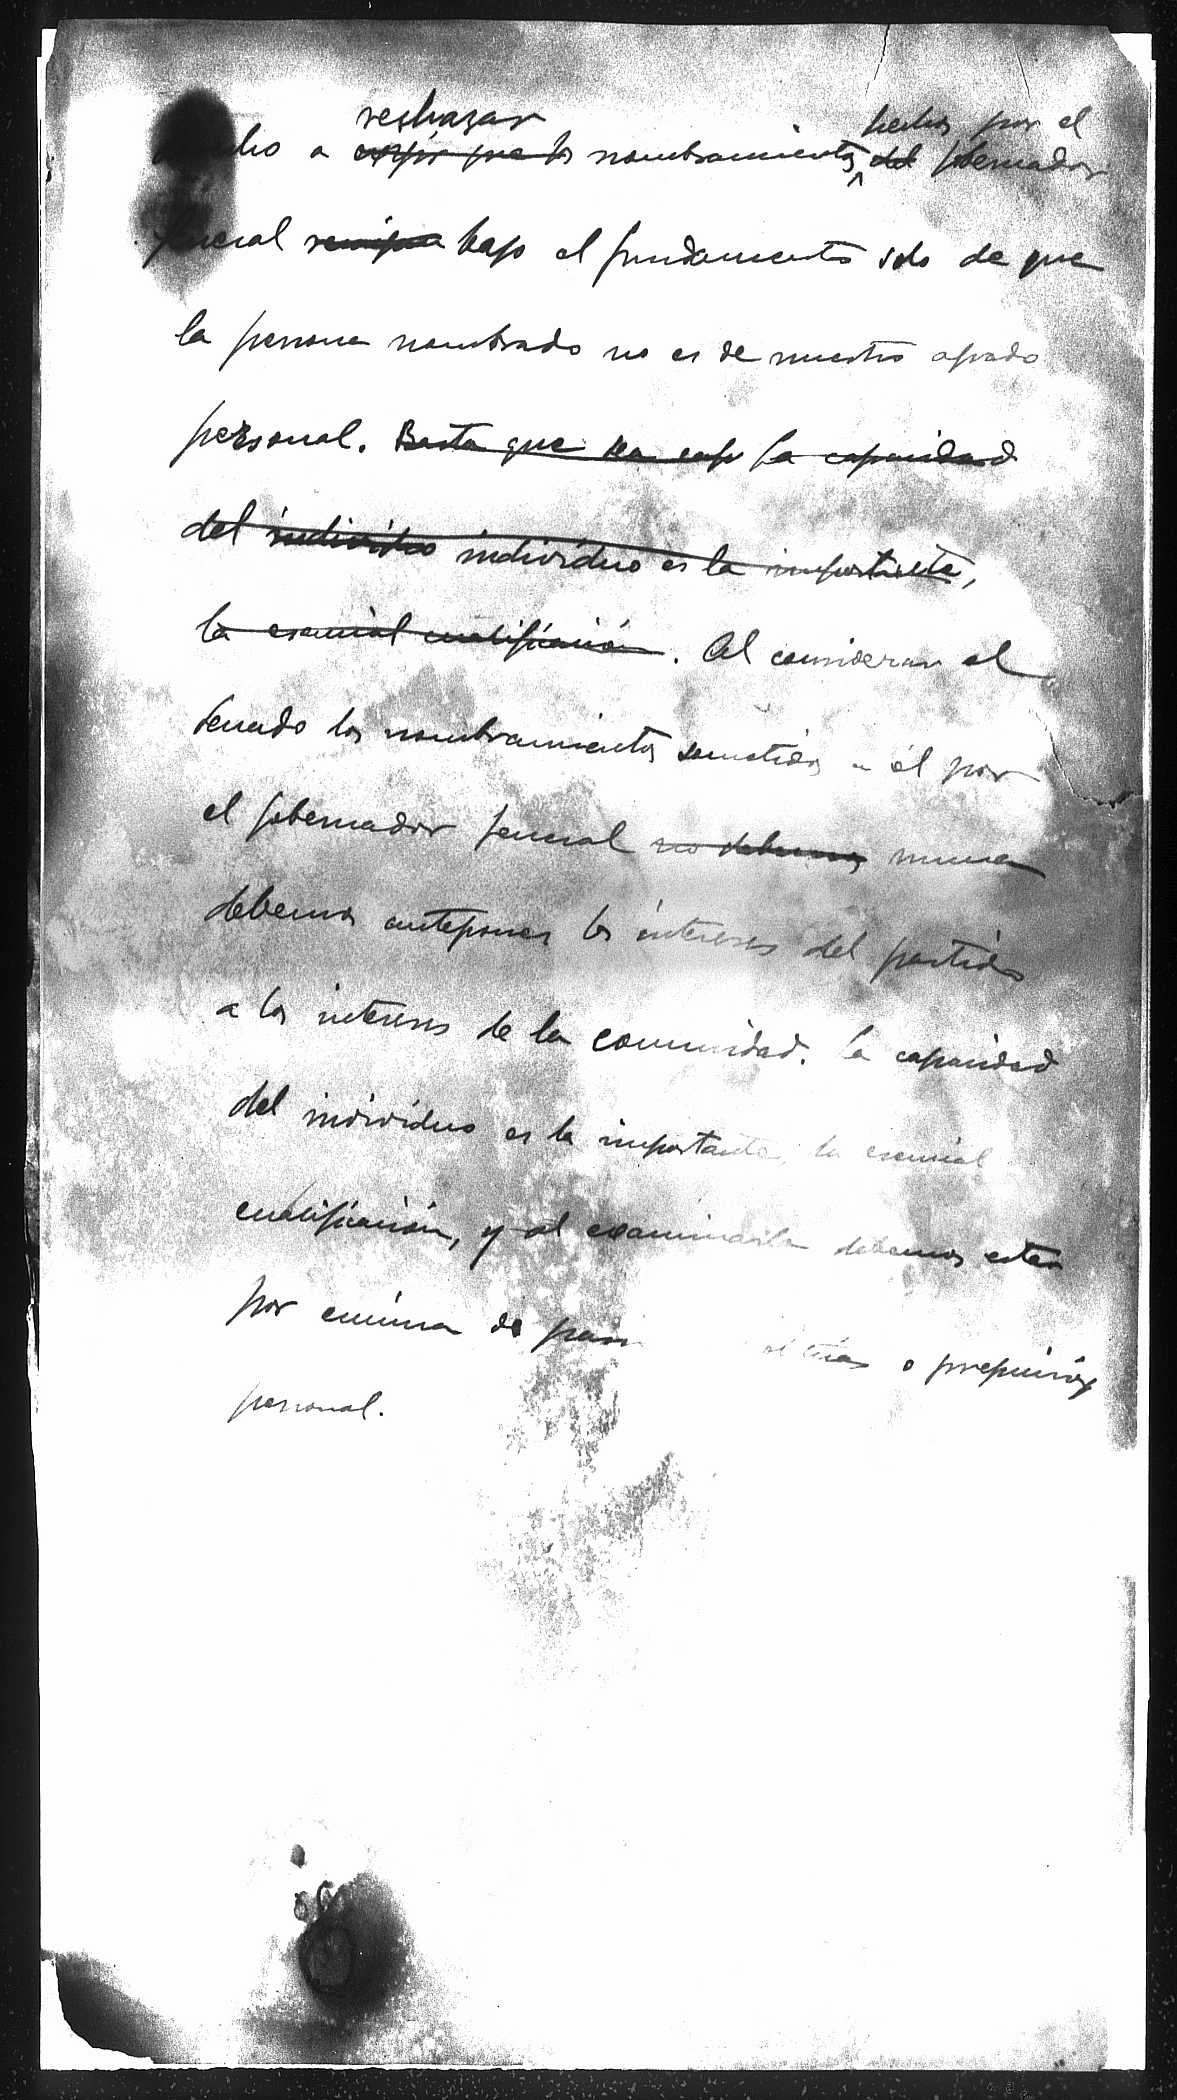 rechazar hechos por el
a exijir que los nombramientos del gobernador
general bajo el fundamento solo de que
la persona nombrado no es de nuestro agrado
personal. Basta que sea la capacidad
del individuo individuo es la importante,
la esencial cualificación. Al considerar el
Senado los nombramientos sometidos a él por
el gobernador general no debemos nunca
debemos anteponer los intereses del partido
a los intereses de la comunidad. La capacidad
del individuo es la importante, la esencial
cualificación, y al examinarla debemos estar
por encima de o prejuicios
personal.